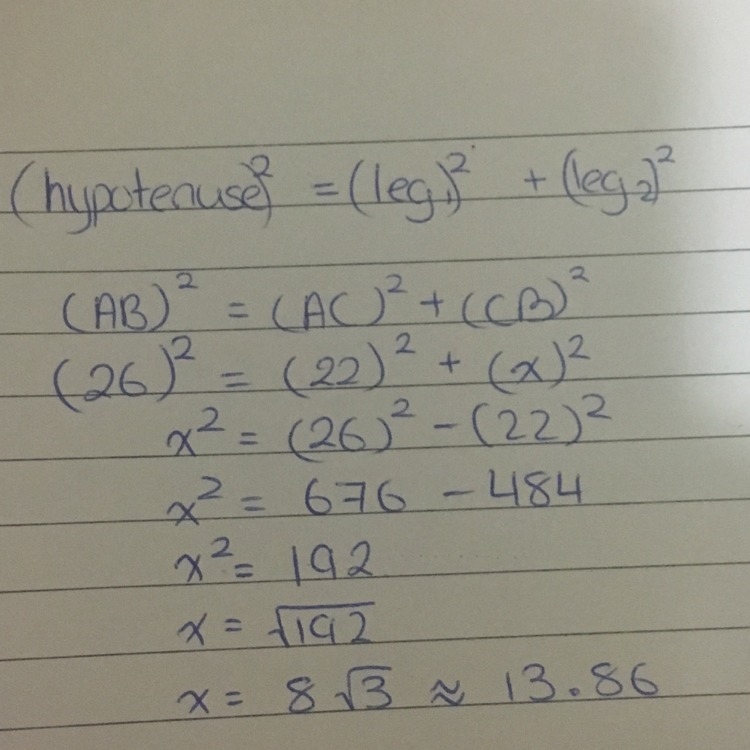 (hypotenuse)² = (leg₁)² + (leg₂)²
(AB)² = (AC)² + (CB)²
(26)² = (22)² + (x)²
x² = (26)² - (22)²
x² = 676 - 484
x² = 192
x = √192
x = 8√3 ≈ 13.86